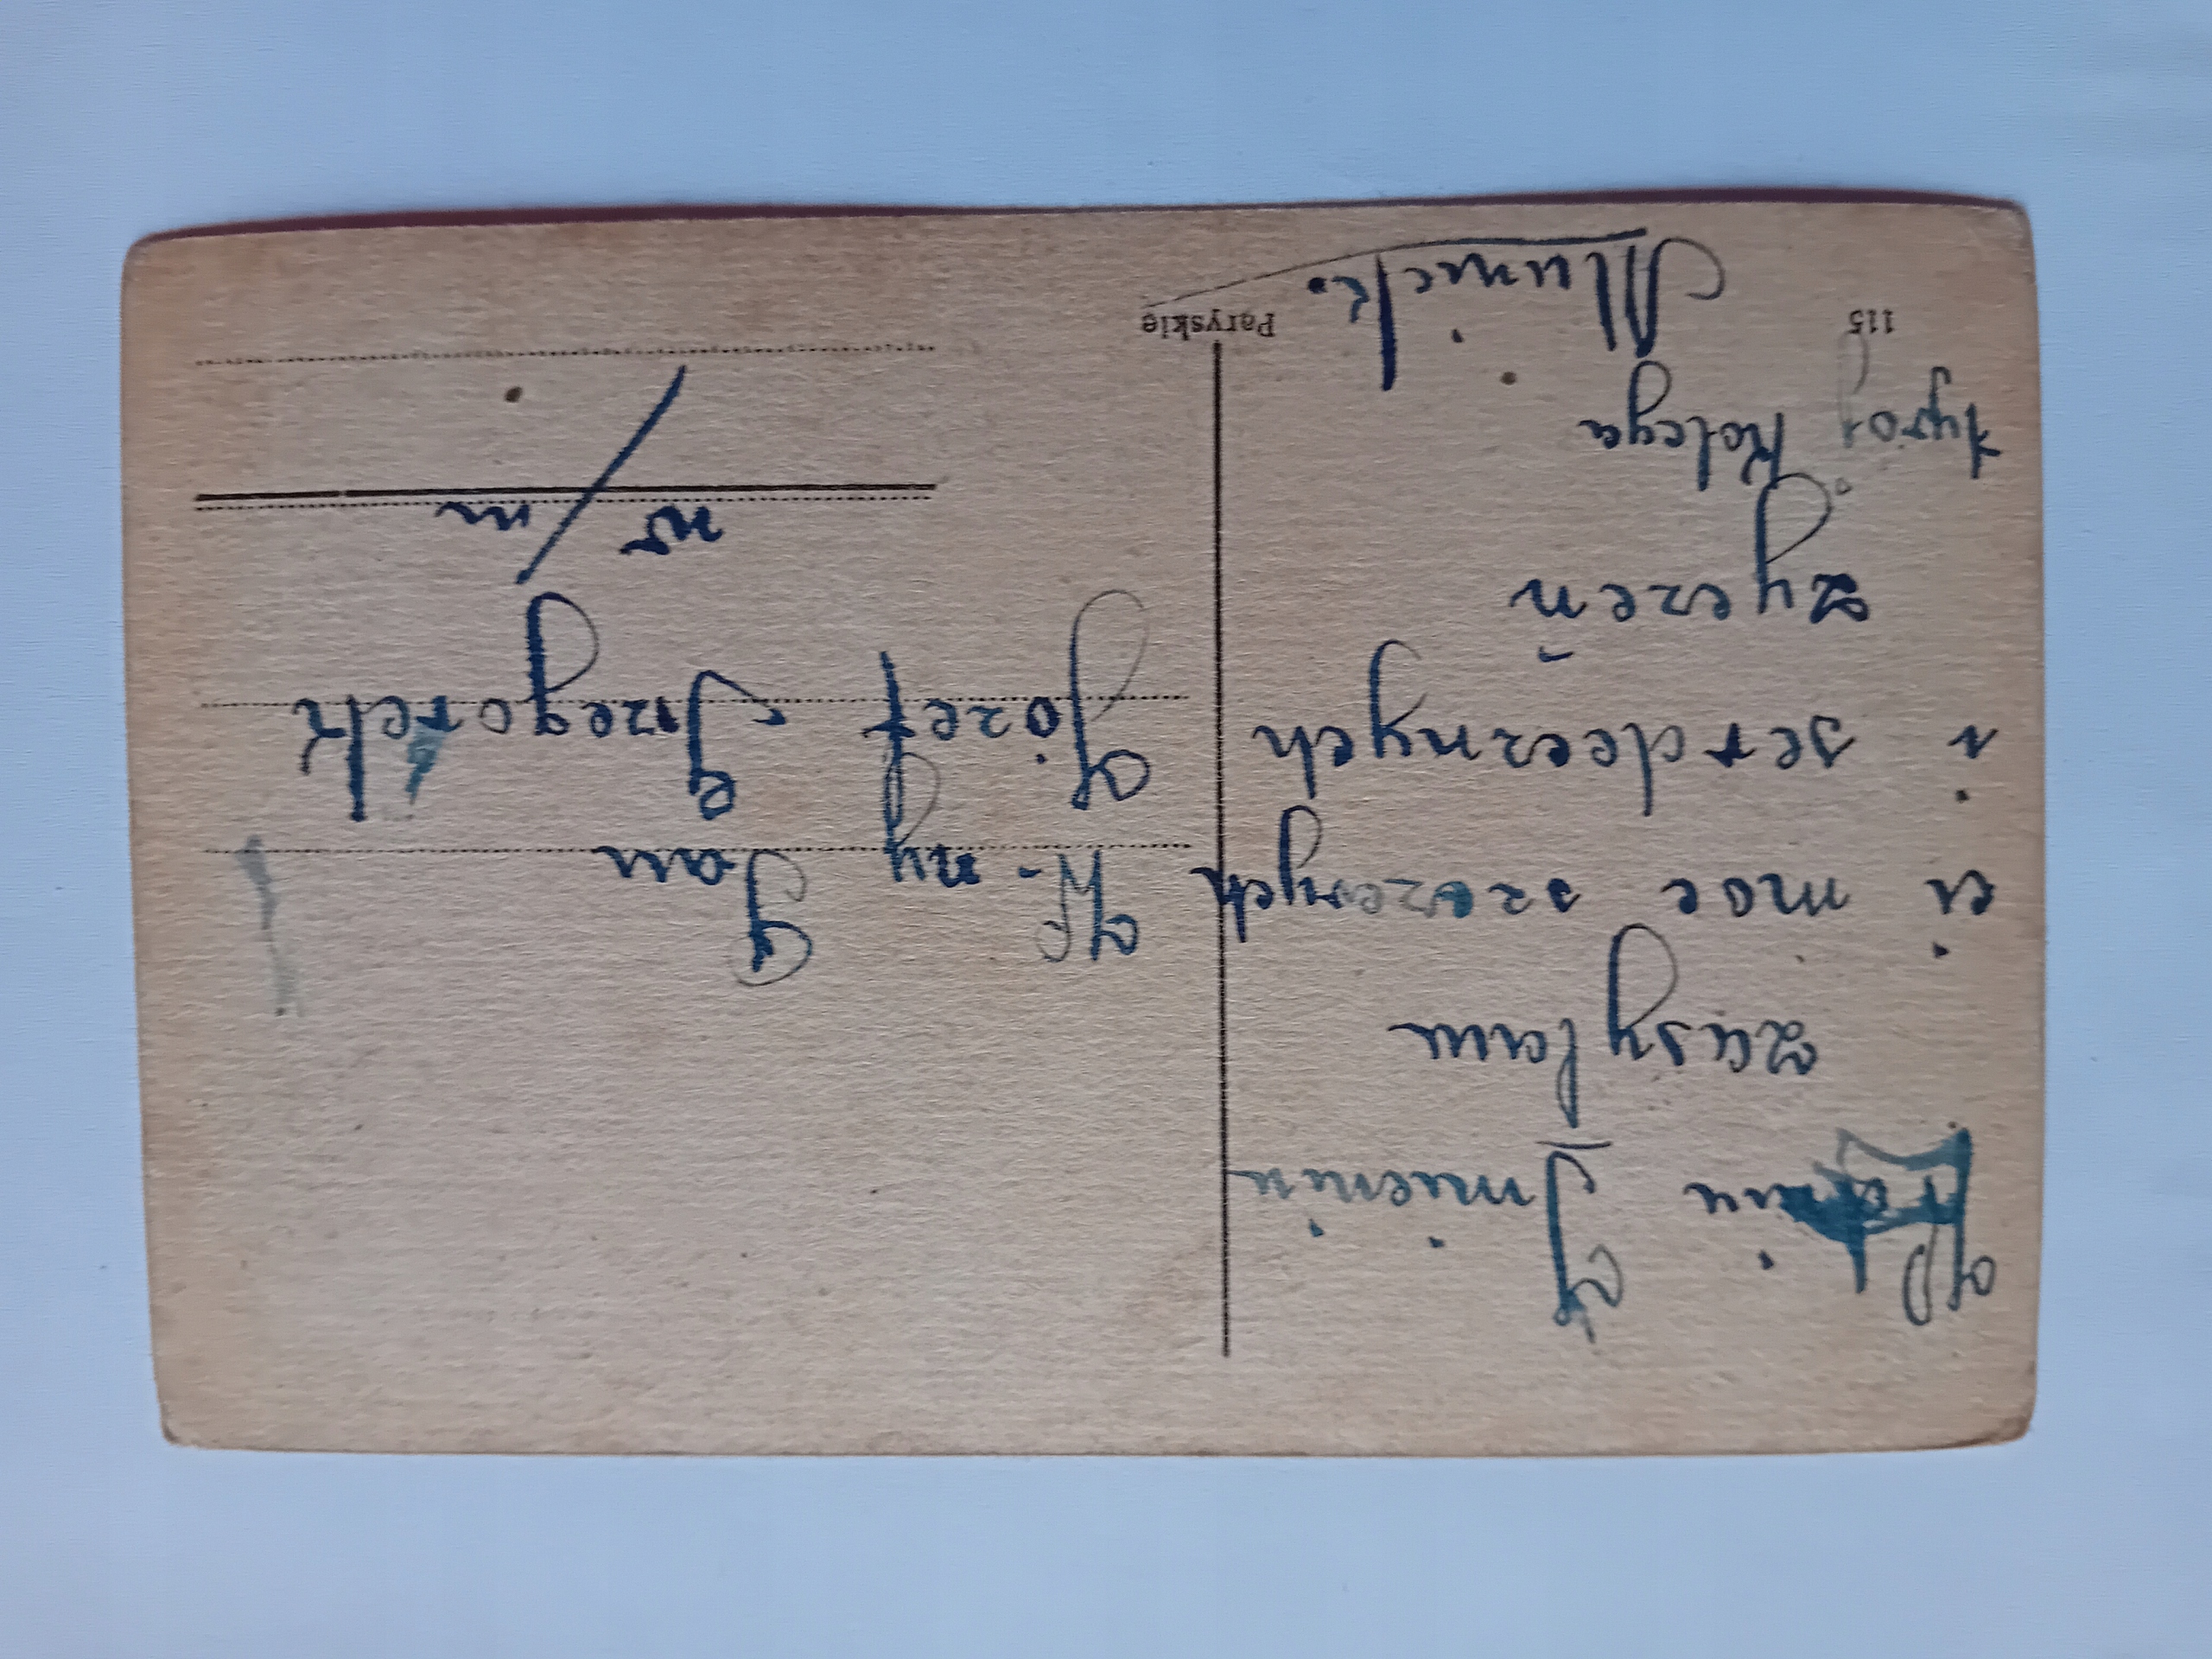 W dniu Imienin
zasyłam
ci moc szczerych
i serdecznych
życzeń
Kolega
115
Paryskie
W-ny Pan
Józef Grzegorek
w/m